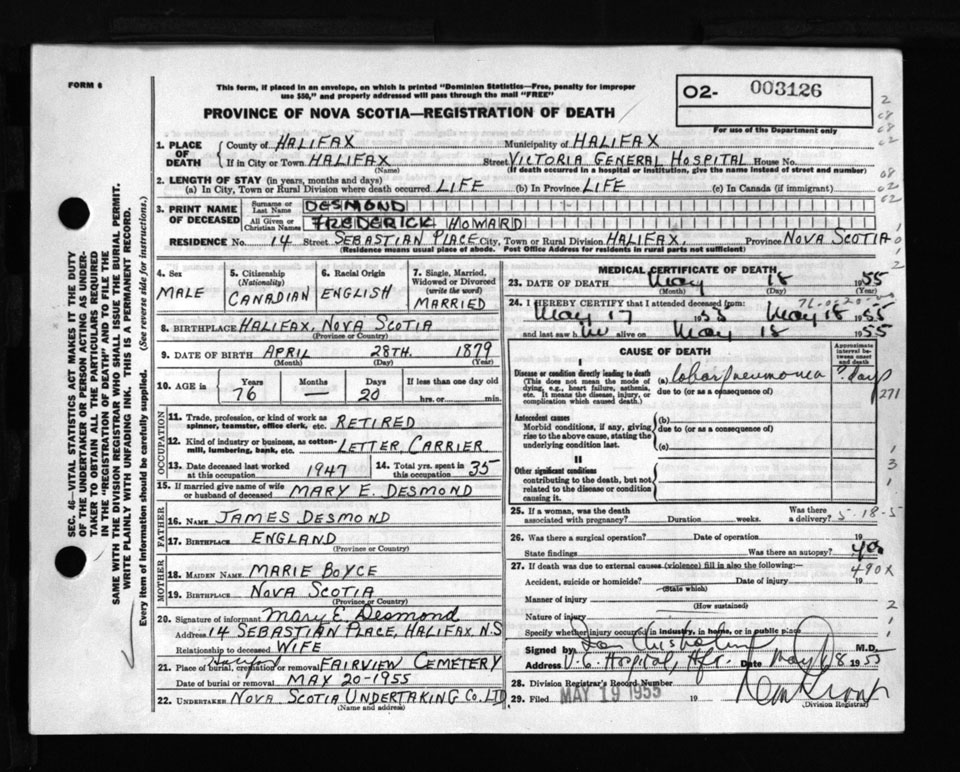 FORM 6
This form, if placed in an envelope, on which is printed "Dominion Statistics—Free, penalty for improper
use $50," and properly addressed will pass through the mail "FREE"
02- 003126
For use of the Department only
PROVINCE OF NOVA SCOTIA—REGISTRATION OF DEATH
1. PLACE OF DEATH
County of HALIFAX Municipality of HALIFAX
If in City or Town HALIFAX (Name) Street VICTORIA GENERAL HOSPITAL House No.
(If death occurred in a hospital or institution, give the name instead of street and number)
2. LENGTH OF STAY (in years, months and days)
(a) In City, Town or Rural Division where death occurred LIFE (b) In Province LIFE (c) In Canada (if immigrant)
3. PRINT NAME OF DECEASED
Surname or Last Name DESMOND
All Given or Christian Names FREDERICK HOWARD
RESIDENCE No. 14 Street SEBASTIAN PLACE City, Town or Rural Division HALIFAX, Province NOVA SCOTIA
(Residence means usual place of abode. Post Office Address for residents in rural parts not sufficient)
4. Sex MALE
5. Citizenship (Nationality) CANADIAN
6. Racial Origin ENGLISH
7. Single, Married, Widowed or Divorced (write the word) MARRIED
8. BIRTHPLACE HALIFAX, NOVA SCOTIA
(Province or Country)
9. DATE OF BIRTH APRIL 28TH. 1879
(Month) (Day) (Year)
10. AGE in Years 76 Months — Days 20 If less than one day old hrs. or min.
OCCUPATION
11. Trade, profession, or kind of work as spinner, teamster, office clerk, etc. RETIRED
12. Kind of industry or business, as cotton-mill, lumbering, bank, etc. LETTER CARRIER
13. Date deceased last worked at this occupation 1947 14. Total yrs. spent in 35
15. If married give name of wife or husband of deceased MARY E. DESMOND
FATHER
16. NAME JAMES DESMOND
17. BIRTHPLACE ENGLAND
(Province or Country)
MOTHER
18. MAIDEN NAME MARIE BOYCE
19. BIRTHPLACE NOVA SCOTIA
(Province or Country)
20. Signature of informant Mary E. Desmond
Address 14 SEBASTIAN PLACE, HALIFAX, N.S
Relationship to deceased WIFE
21. Place of burial, cremation or removal FAIRVIEW CEMETERY
Date of burial or removal MAY 20-1955
22. UNDERTAKER NOVA SCOTIA UNDERTAKING CO. LTD
(Name and address)
MEDICAL CERTIFICATE OF DEATH
23. DATE OF DEATH May 18 1955
(Month) (Day) (Year)
24. I HEREBY CERTIFY that I attended deceased from:
May 17 1955 May 18 1955
and last saw h im alive on May 18 1955
CAUSE OF DEATH
Approximate interval between onset and death
I
Disease or condition directly leading to death
(This does not mean the mode of dying, e.g., heart failure, asthenia, etc. It means the disease, injury, or complication which caused death.)
(a) lobar pneumonia ? days
due to (or as a consequence of)
271
Antecedent causes
Morbid conditions, if any, giving rise to the above cause, stating the underlying condition last.
(b)
due to (or as a consequence of)
(c)
II
Other significant conditions
contributing to the death, but not related to the disease or condition causing it.
25. If a woman, was the death associated with pregnancy? Duration weeks. Was there a delivery? 5-18-5
26. Was there a surgical operation? Date of operation 19
State findings Was there an autopsy? no
27. If death was due to external causes (violence) fill in also the following:— 490X
Accident, suicide or homicide? (State which) Date of injury 19
Manner of injury
(How sustained)
Nature of injury
Specify whether injury occurred in industry, in home, or in public place
Signed by Ian Chisholm M.D.
Address V.G. Hospital, Hfx. Date May 18 1955
28. Division Registrar's Record Number
29. Filed MAY 19 1955 19
(Division Registrar)
SEC. 46—VITAL STATISTICS ACT MAKES IT THE DUTY
OF THE UNDERTAKER OR PERSON ACTING AS UNDER-
TAKER TO OBTAIN ALL THE PARTICULARS REQUIRED
IN THE "REGISTRATION OF DEATH" AND TO FILE THE
SAME WITH THE DIVISION REGISTRAR WHO SHALL ISSUE THE BURIAL PERMIT.
WRITE PLAINLY WITH UNFADING INK. THIS IS A PERMANENT RECORD.
Every item of information should be carefully supplied. (See reverse side for instructions.)